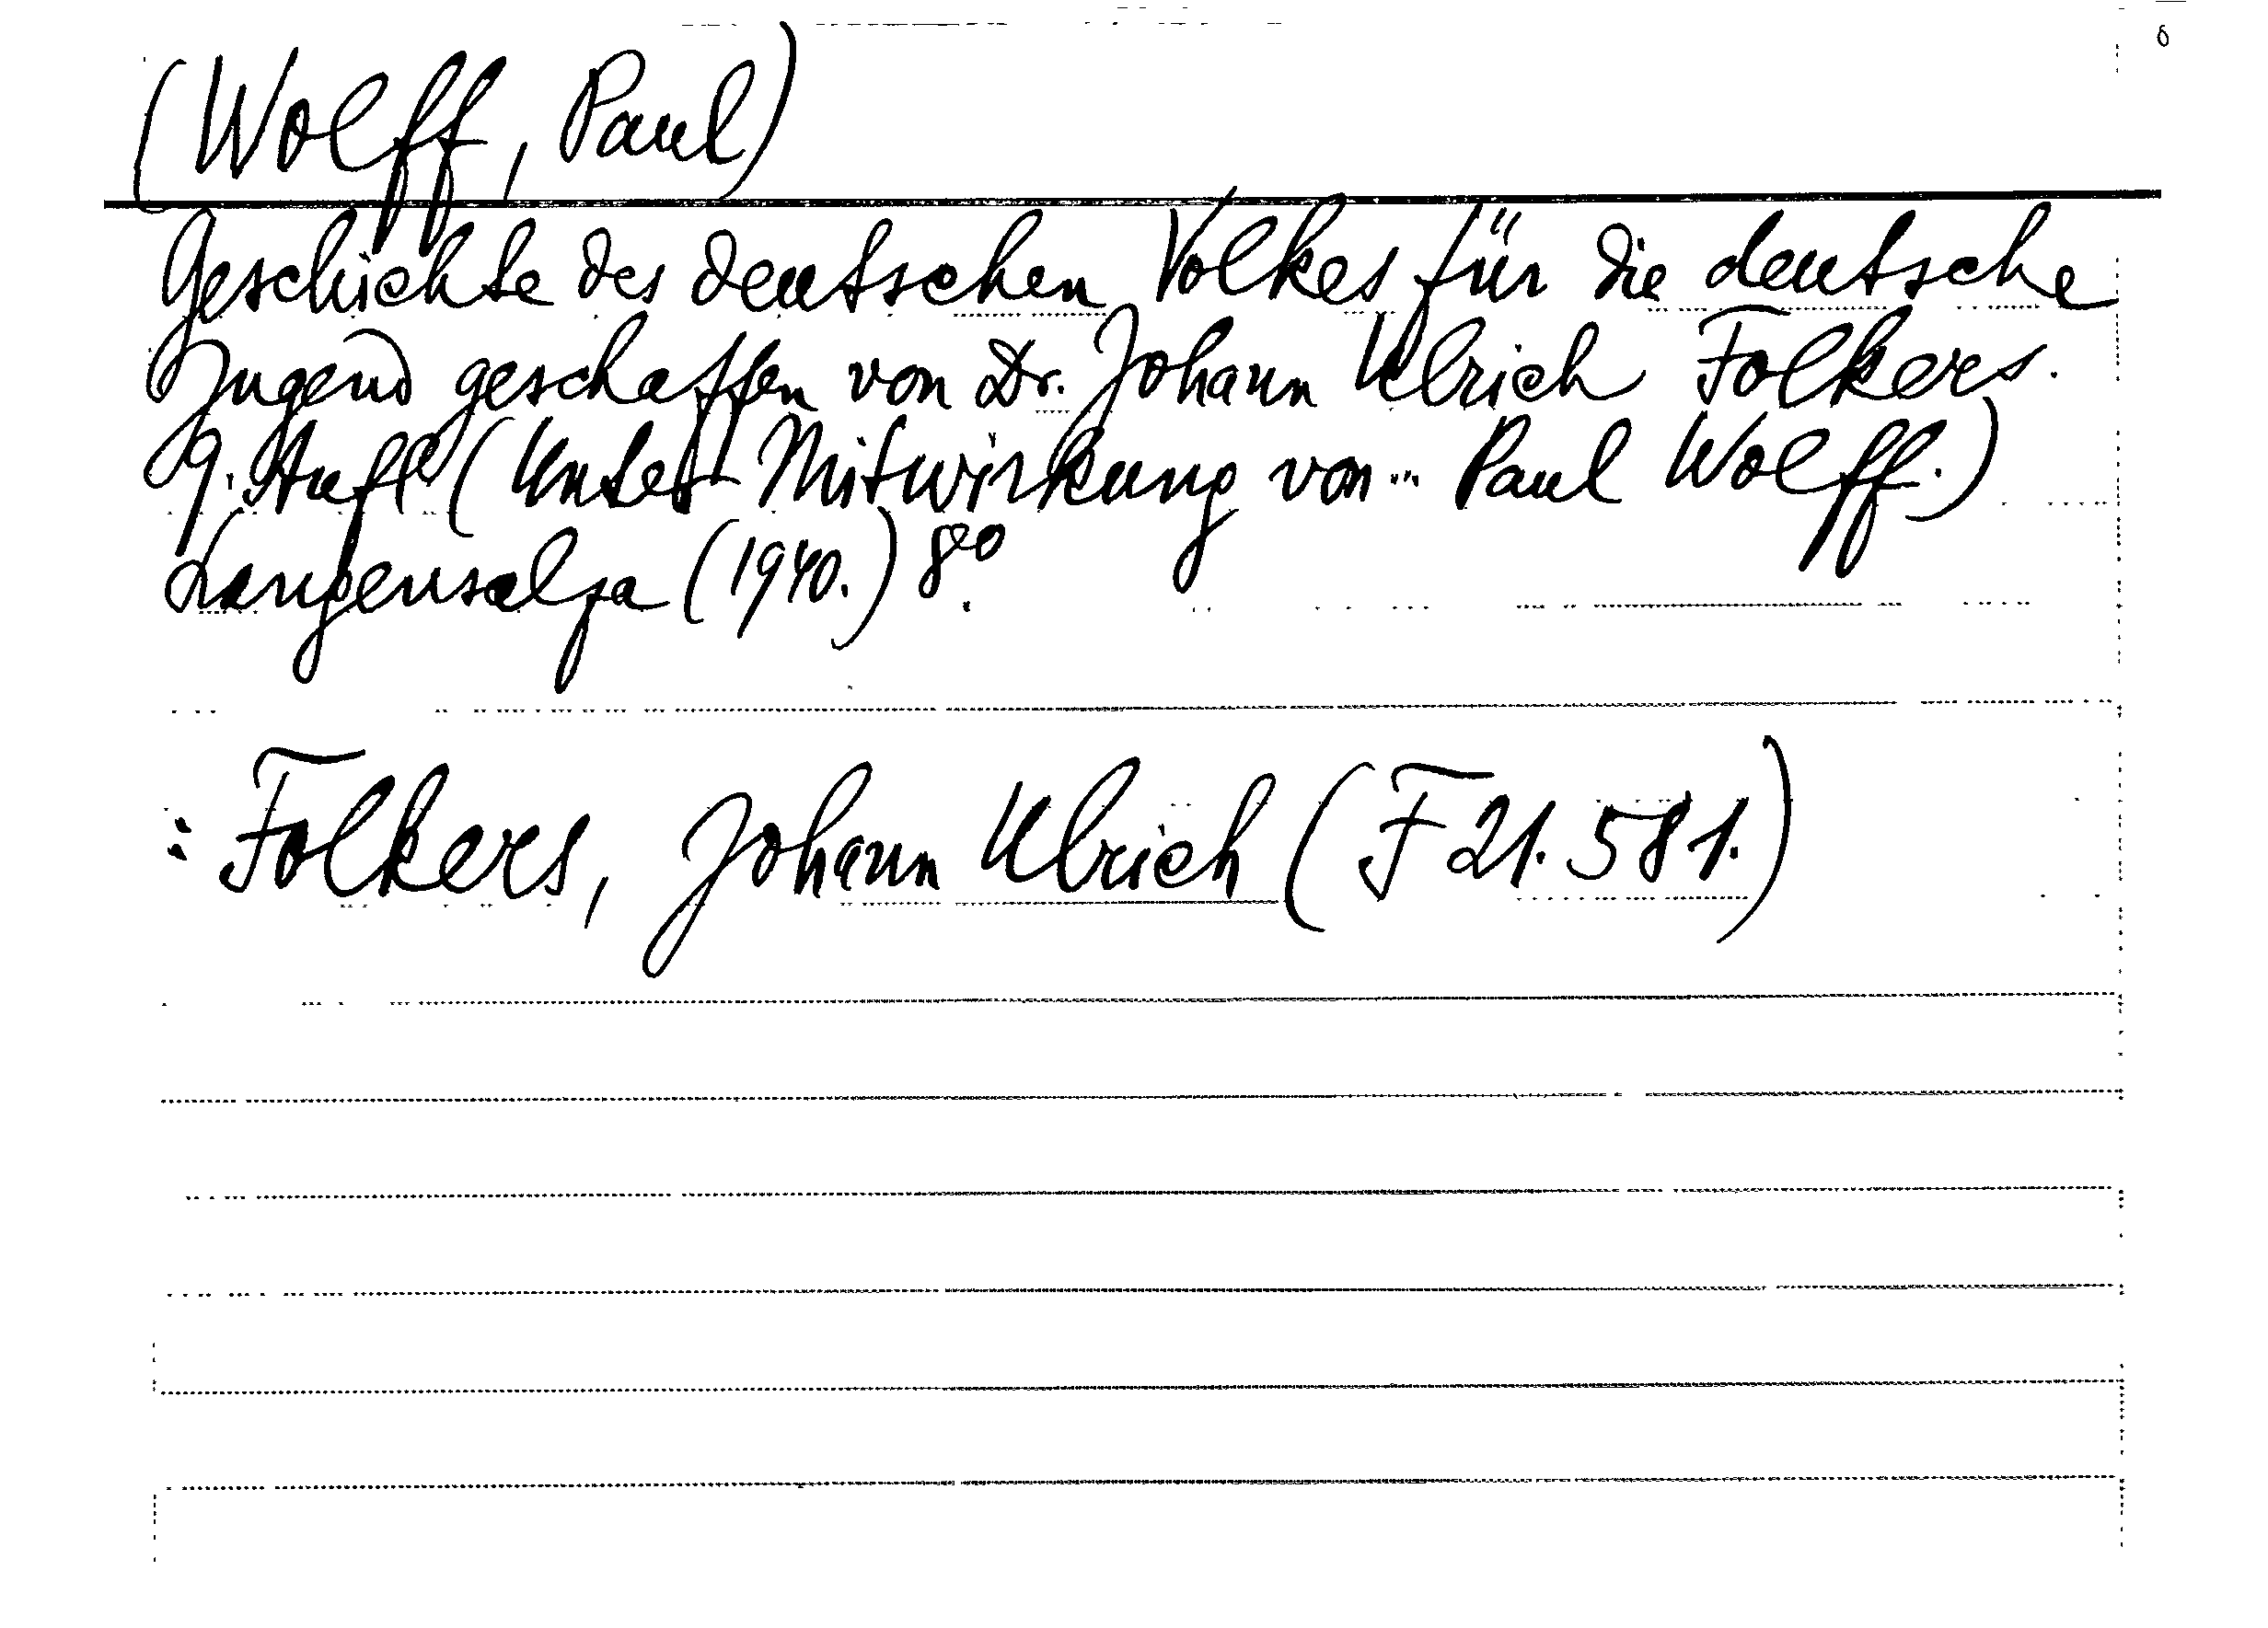 (Wolff, Paul)
Geschichte des deutschen Volkes für die deutsche
Jugend geschaffen von Dr. Johann Ulrich Folkers.
9. Aufl (Unter Mitwirkung von ... Paul Wolff.)
Langensalza (1940.) 8°.
: Folkers, Johann Ulrich (F 21. 581.)